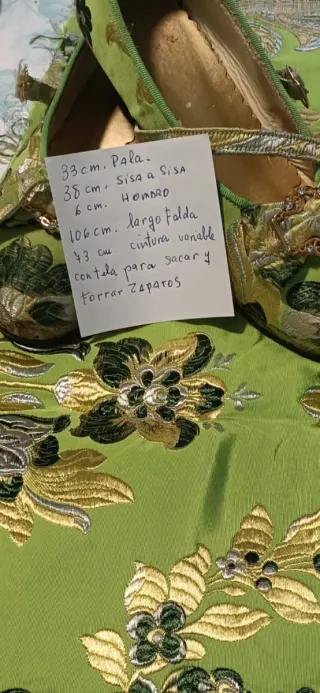 33 cm. Pala.
38 cm. SISA a SISA
6 cm. HOMBRO
106 cm. largo falda
73 cm. cintura variable
con tela para sacar y
Forrar ZAPATOS